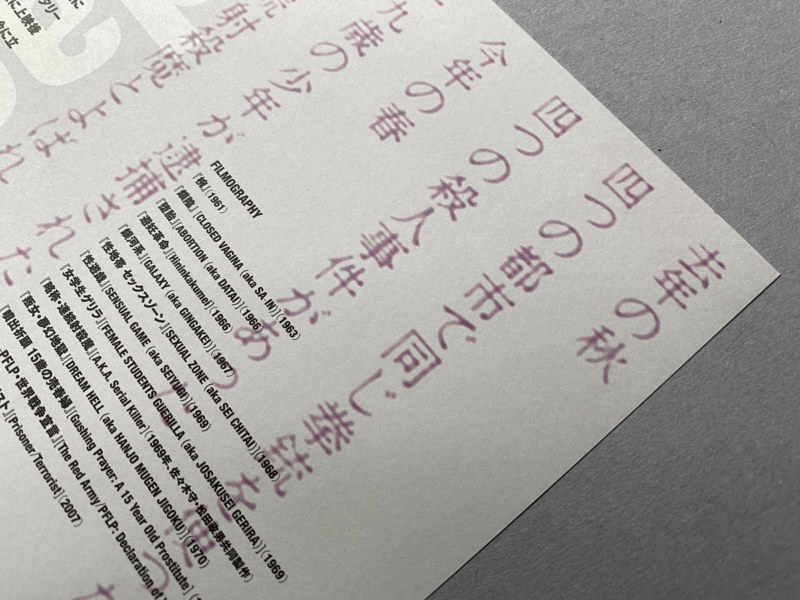 去年の秋
四つの都市で同じ拳銃を使った
四つの殺人事件があった
今年の春
九歳の少年が逮捕された
続射殺魔とよばれ
FILMOGRAPHY
『椀』(1961)
『鎖陰』[CLOSED VAGINA (aka SA-IN)](1963)
『堕胎』[ABORTION (aka DATAI)](1966)
『避妊革命』[Hininkakumei](1966)
『銀河系』[GALAXY (aka GINGAKEI)](1967)
『性地帯 セックスゾーン』[SEXUAL ZONE (aka SEI CHITAI)](1968)
『性遊戯』[SENSUAL GAME (aka SEIYUGI)](1969)
『女学生ゲリラ』[FEMALE STUDENTS GUERILLA (aka JOSAKUSEI GERIRA)](1969)
『略称・連続射殺魔』[A.K.A. Serial Killer](1969年、佐々木守・松田政男共同製作)
『叛女・夢幻地獄』[DREAM HELL (aka HANJO MUGEN JIGOKU)](1970)
『噴出祈願 15歳の売春婦』[Gushing Prayer: A 15 Year Old Prostitute]
PFLP・世界戦争宣言』[The Red Army/PFLP: Declaration of
スト』[Prisoner/Terrorist](2007)